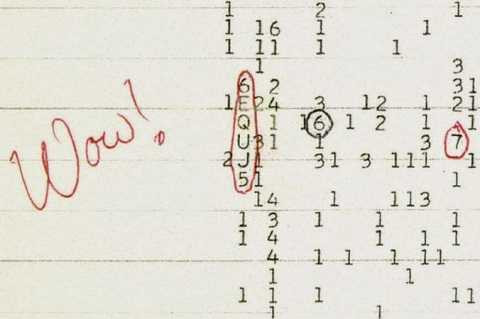 1 2 1
1 16 1 1
1 11 1 1
1 3
6 2 31
1 E 24 3 12 1 21
Q 1 16 1 2 1 1
Wow!
U 31 1 3 7
2 J 1 31 3 111 1
5 1 1
14 1 113
1 3 1 1 1
1 4 1 1 1
4 1 1 1 11
1 1
1 1 1 11
1 1